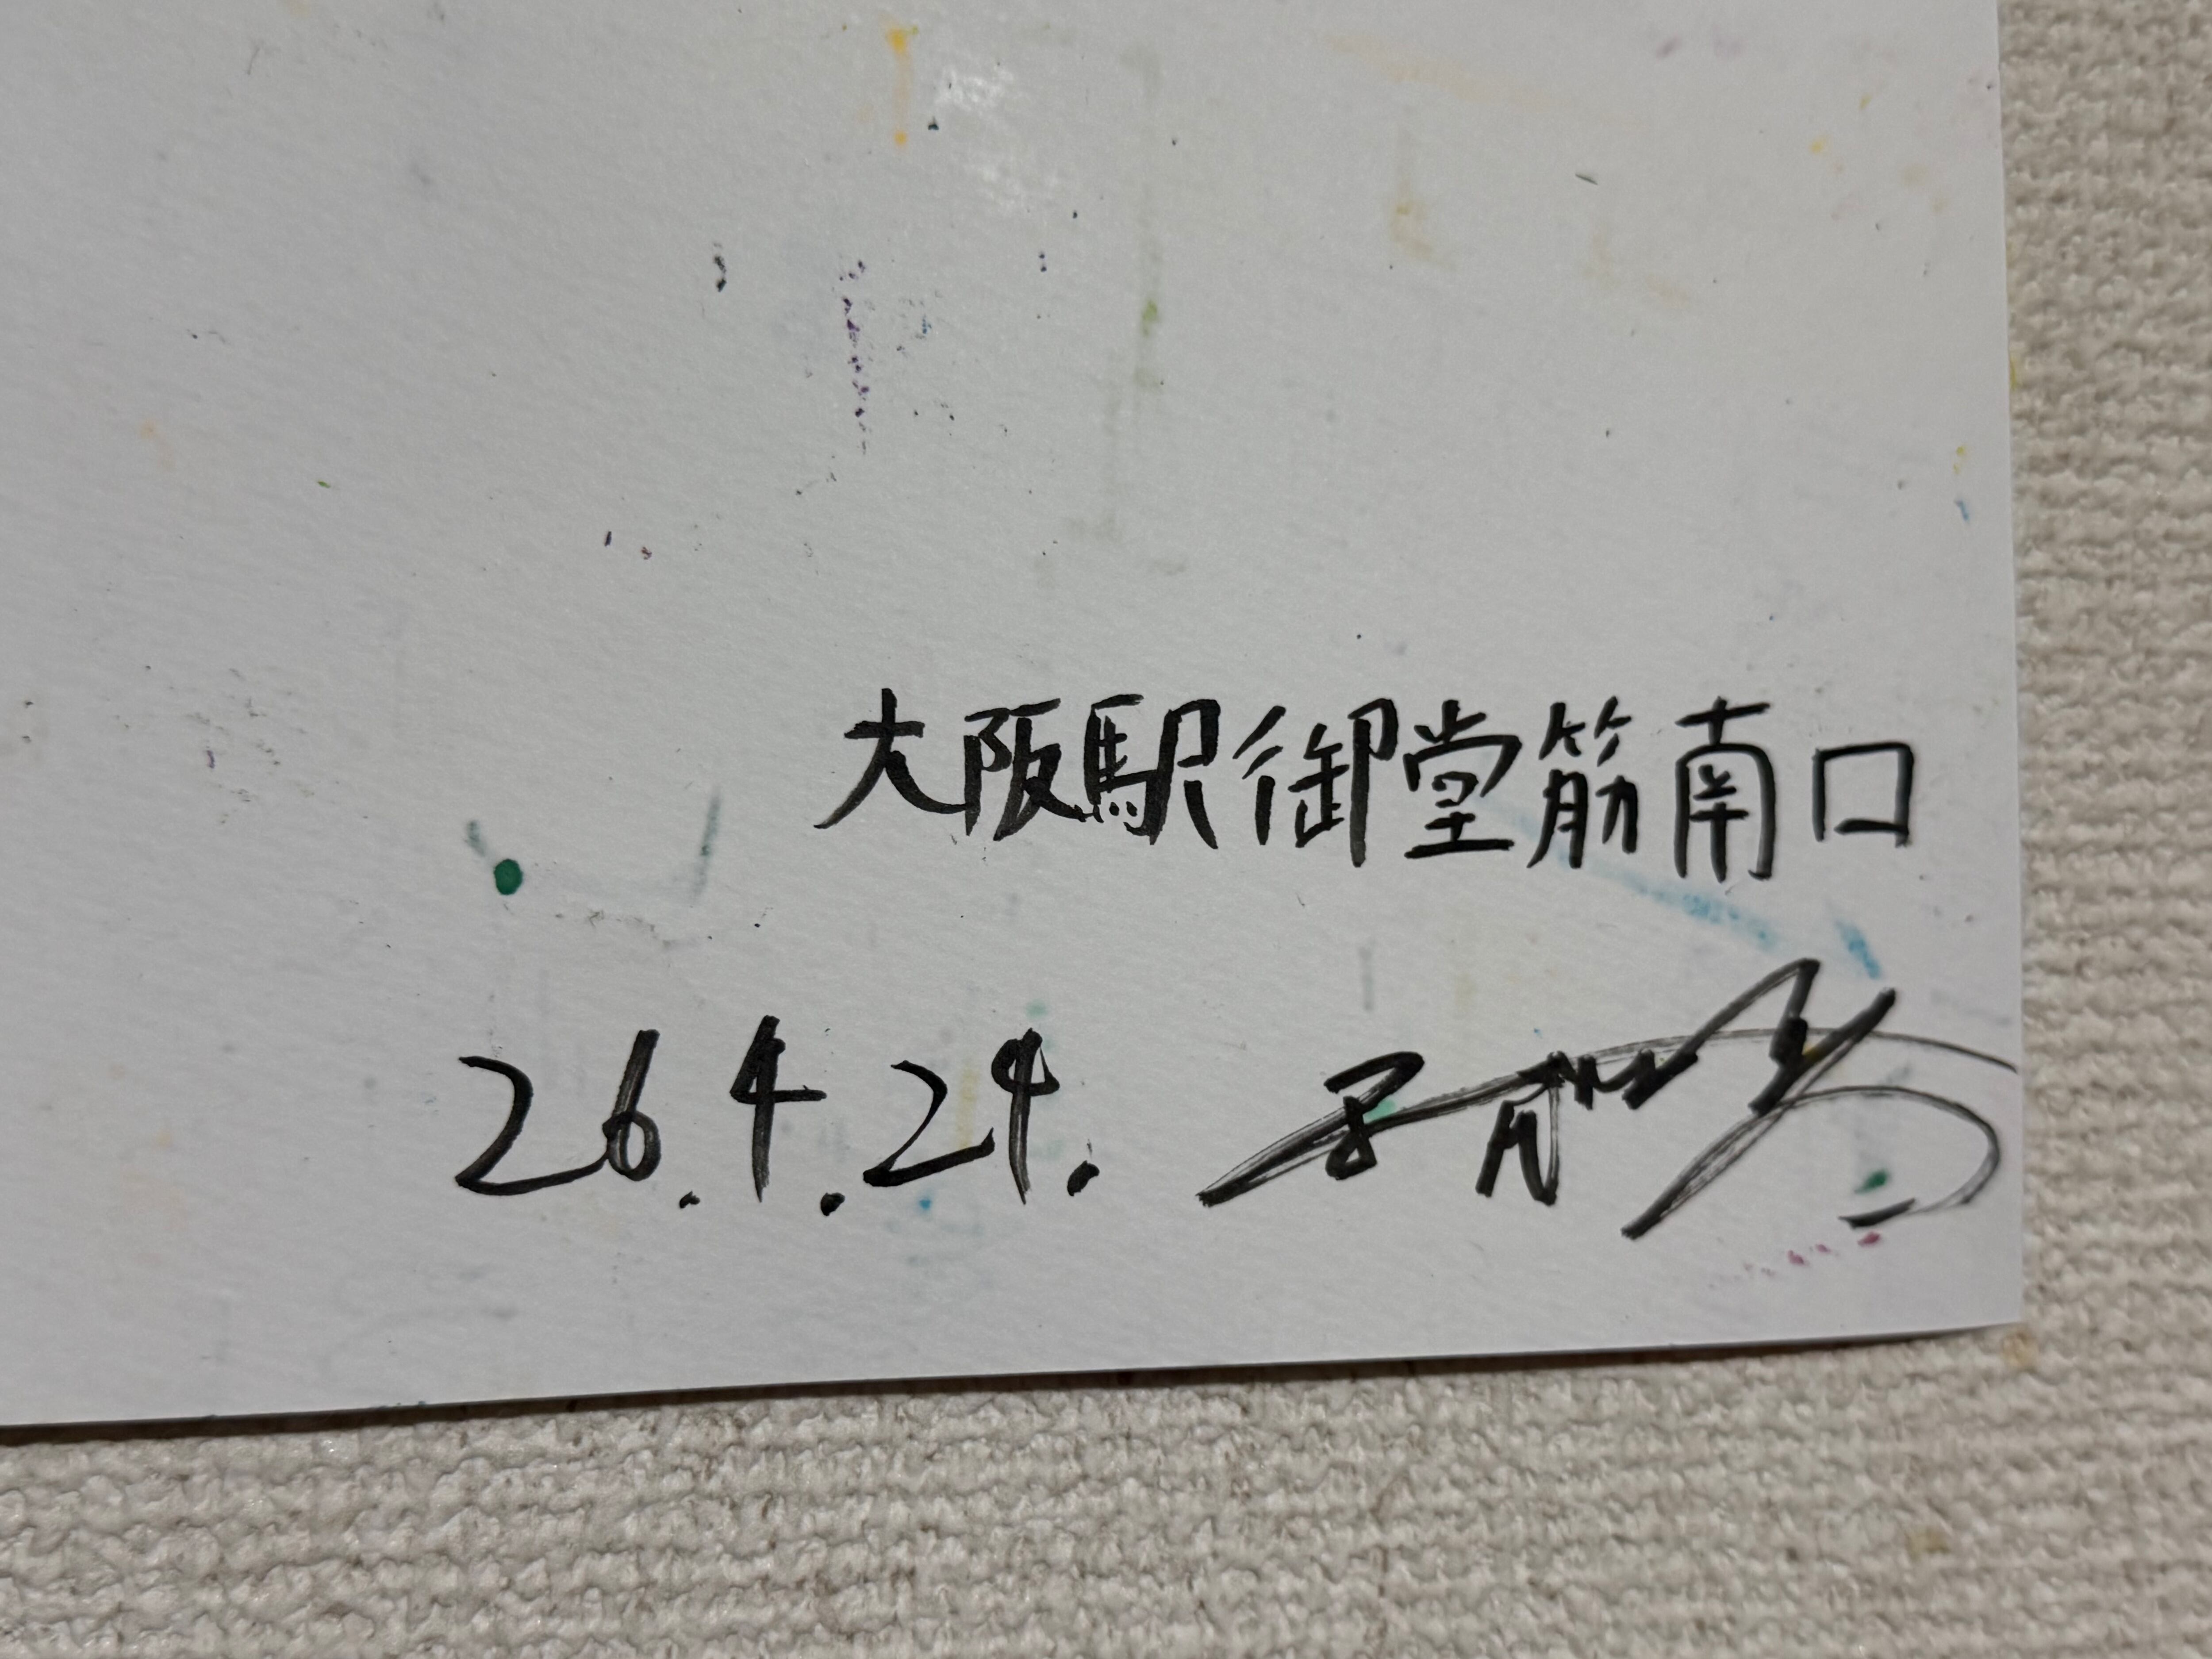 大阪駅御堂筋南口
26.4.24.